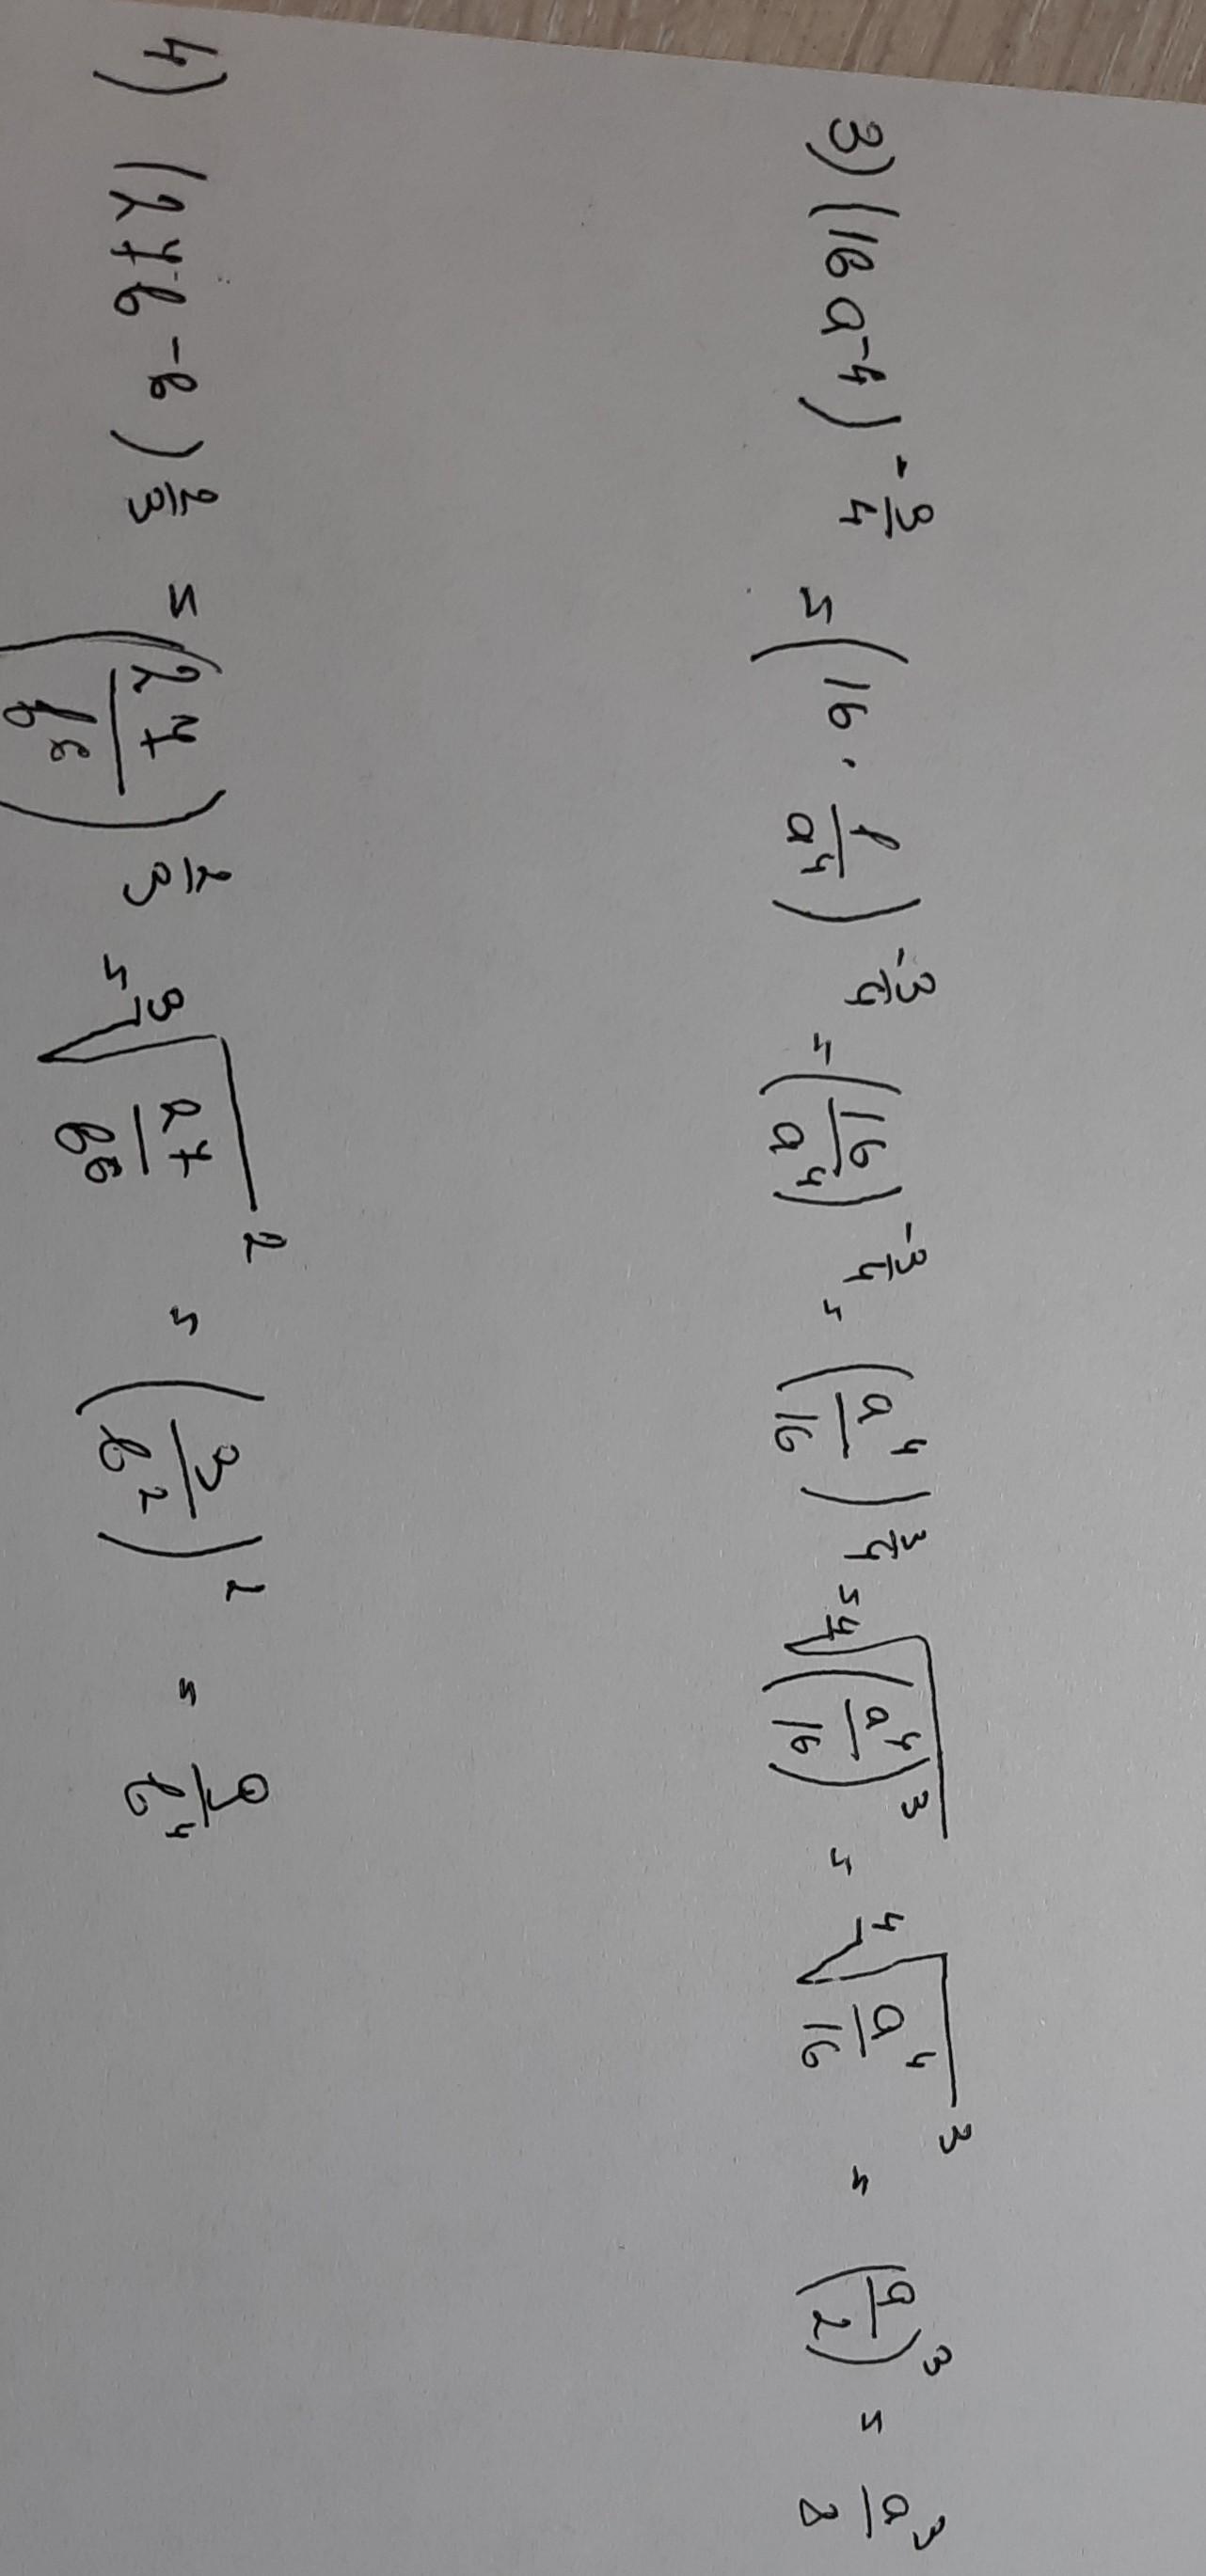 3) (16a⁻⁴)^(-3/4) = (16 · 1/a⁴)^(-3/4) = (16/a⁴)^(-3/4) = (a⁴/16)^(3/4) = ⁴√((a⁴/16)³) = ⁴√(a⁴/16)³ = (a/2)³ = a³/8
4) (27b⁻⁶)^(2/3) = (27/b⁶)^(2/3) = ³√(27/b⁶)² = (3/b²)² = 9/b⁴